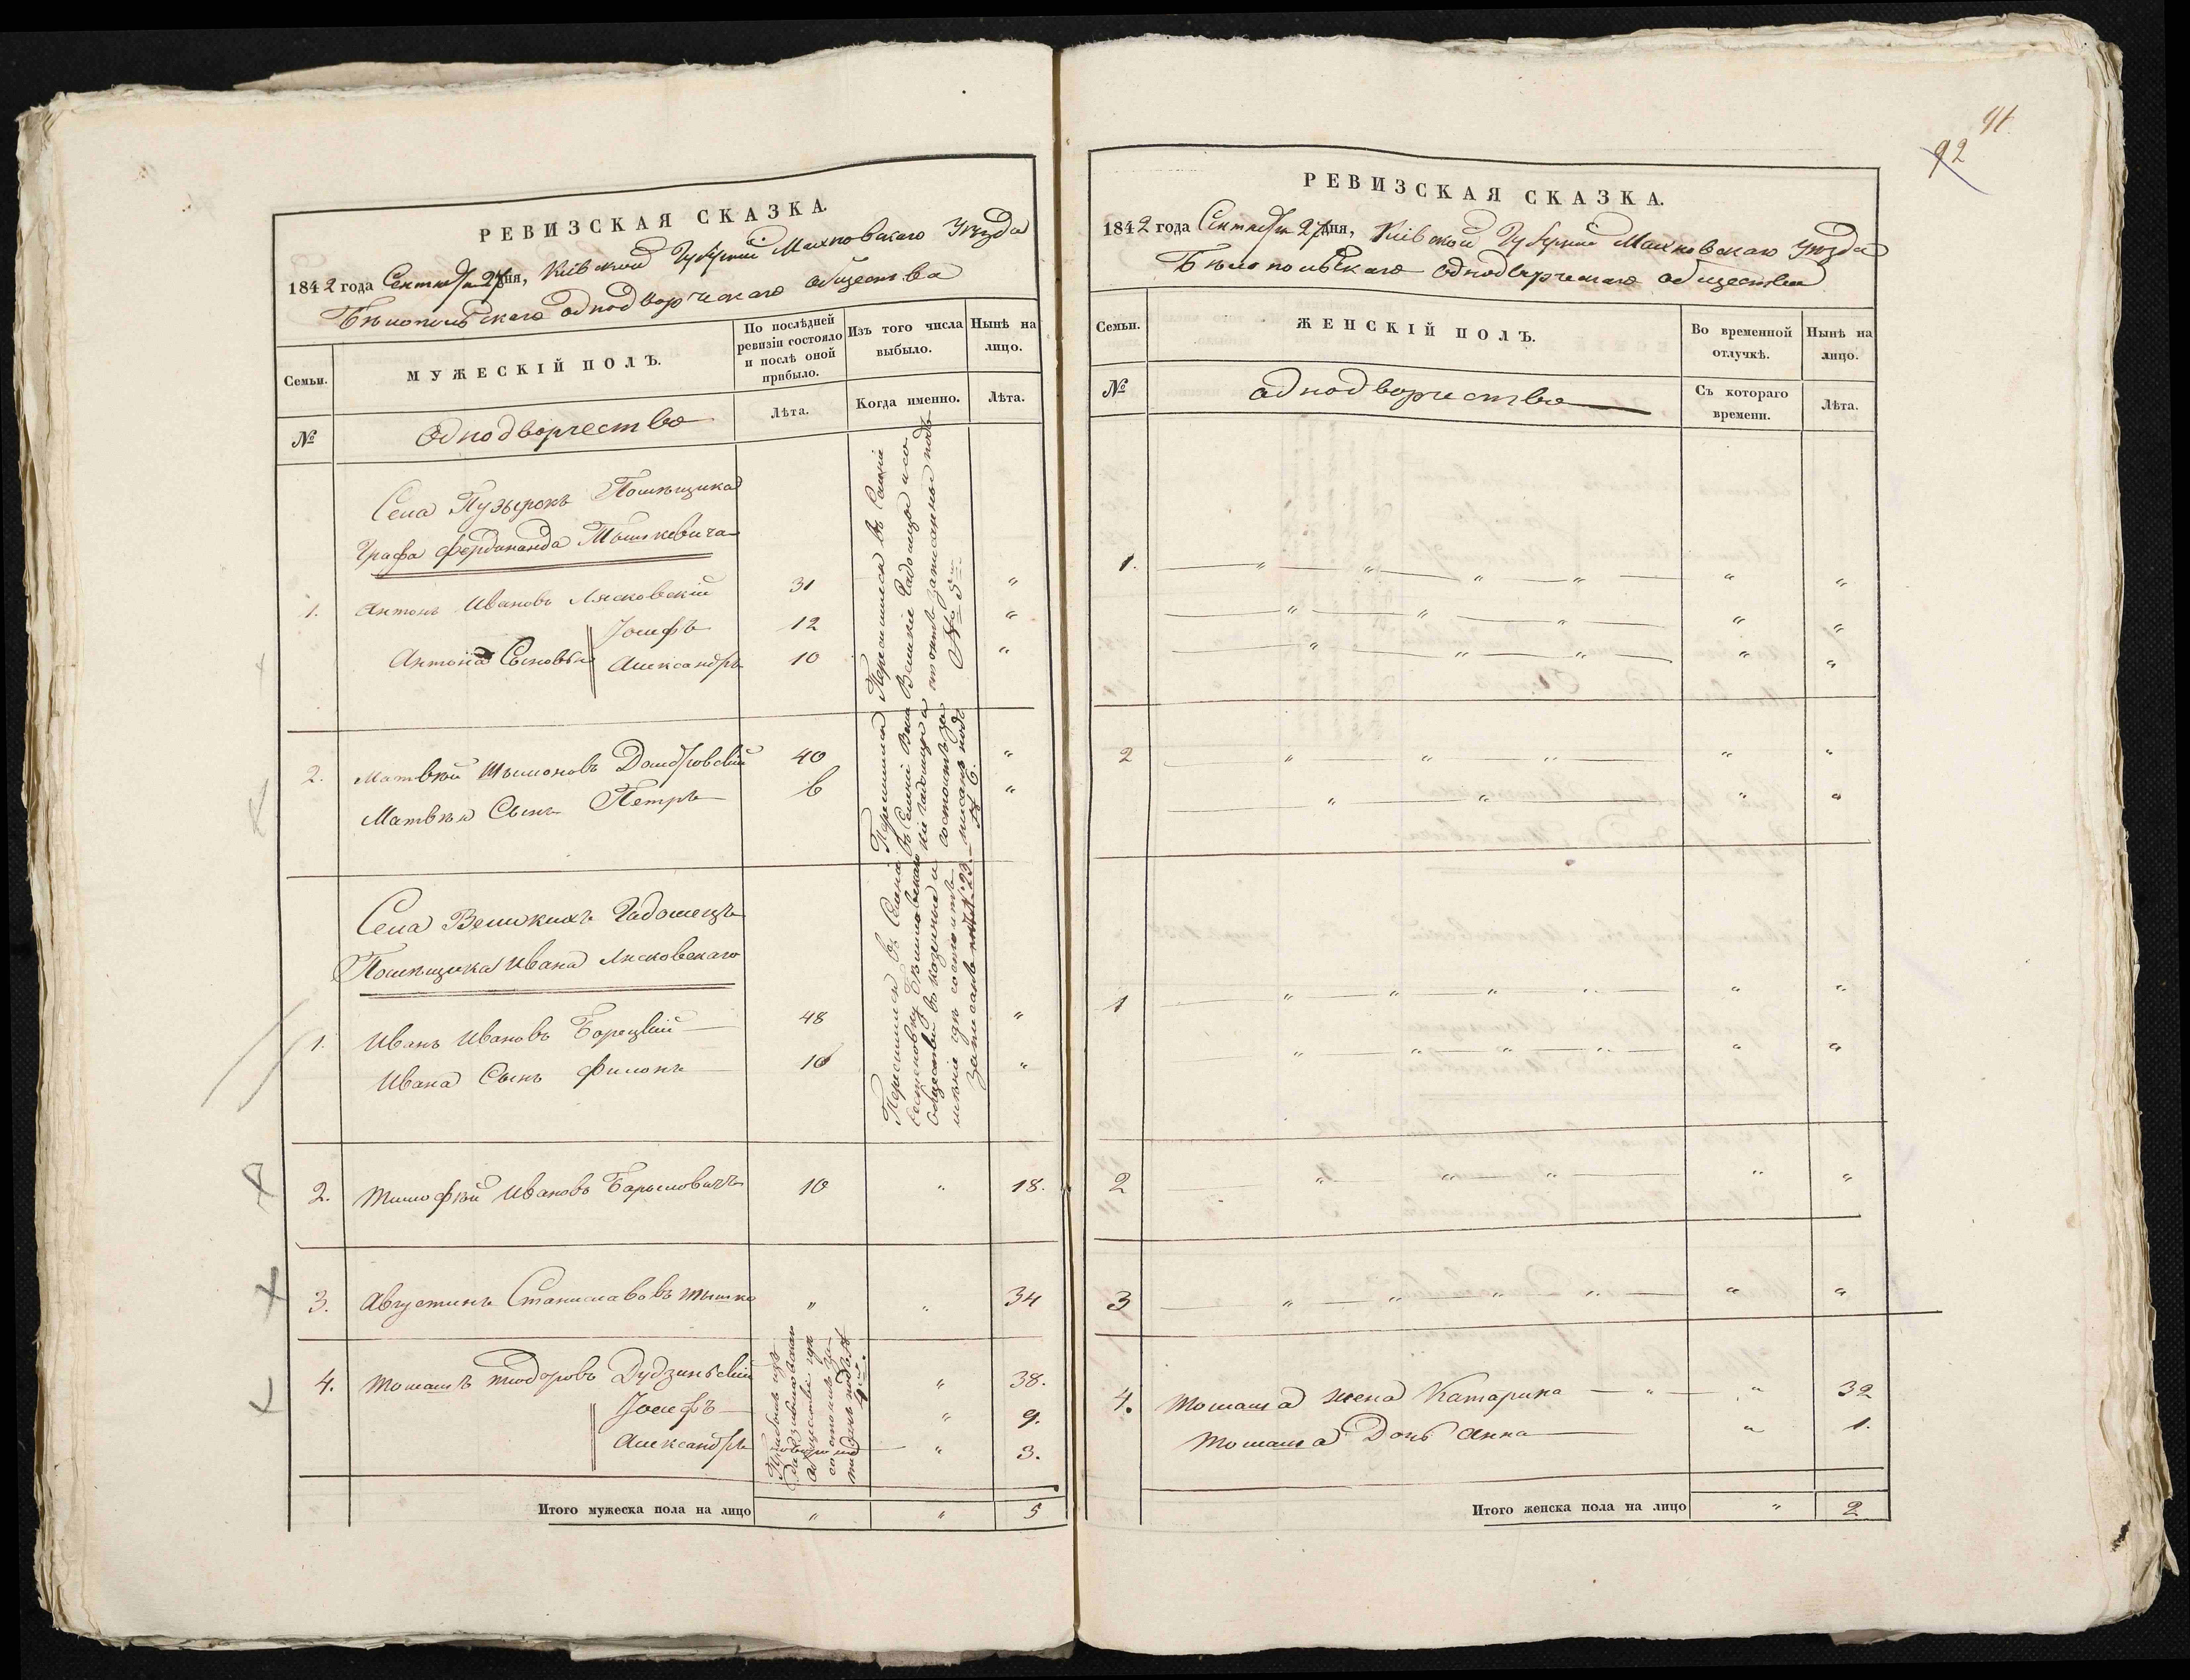 РЕВИЗСКАЯ СКАЗКА.
1842 года Сентября 27 дня, Кіевской Губерніи Махновскаго Уѣзда
Бѣлопольскаго однодворческаго общества
Семьи.
МУЖЕСКІЙ ПОЛЪ.
По послѣдней ревизіи состояло и послѣ оной прибыло.
Изъ того числа выбыло.
Нынѣ на лицо.
№
Однодворчество
Лѣта.
Когда именно.
Лѣта.
Села Пузырокъ Помѣщика
Графа Фердинанда Тышкевича
1. Антонъ Ивановъ Лясковскій 31 "
Іосифъ 12 "
Антона Сыновья Александръ 10 "
Переселился въ Селеніе Великіе Гадомцы и со
стоитъ записаннымъ подъ
№ 5
2. Матвѣй Шымоновъ Домбровскій 40 "
Матвѣя Сынъ Петръ 6 "
состоитъ за
писанъ подъ
№ 6.
Села Великихъ Гадомецъ
Помѣщика Ивана Лясковскаго
1. Иванъ Ивановъ Борецкій 48 "
Ивана Сынъ Филонъ 10 "
Переселился въ Селеніе
общество въ казенное и
мѣніе гдѣ состоитъ
записанъ подъ № 23.
2. Тимофѣй Ивановъ Барылович 10 " 18.
3. Августинъ Станиславовъ Тышко " " 34
4. Томашъ Тиодоровъ Дудзинскій " 38.
Іосифъ " 9.
Александръ " 3.
Прибылъ изъ
обществъ гдѣ
состоитъ за
Итого мужеска пола на лицо " " 5
91.
92
РЕВИЗСКАЯ СКАЗКА.
1842 года Сентября 27 дня, Кіевской Губерніи Махновскаго Уѣзда
Бѣлопольскаго однодворческаго общества
Семьи.
ЖЕНСКІЙ ПОЛЪ.
Во временной отлучкѣ.
Нынѣ на лицо.
№
однодворчество
Съ котораго времени.
Лѣта.
1. " " " " " "
" " " " "
" " " " "
2 " " " " "
" " " "
1 " " " " " "
" " " " " "
2 " " " " "
3 " " " " " "
4. Томаша жена Катарина " " 32
Томаша Дочь Анна " 1.
Итого женска пола на лицо " 2